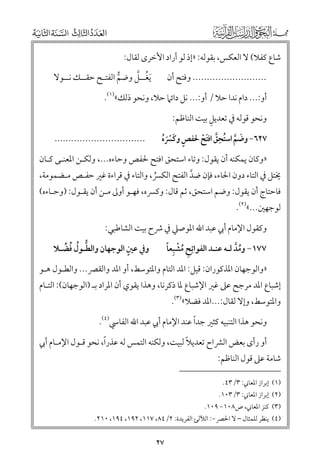 مجلة
العدد الثالث السنة الثانية
شاع كفلا) لا العكس، بقوله: «إذ لو أراد الأخرى لقال:
......................... وفتح أن يَغُلَّ وضمُّ الفتح حقك نولا
أو:... دام ندا حلا/ أو:... نل دائمًا حلا، ونحو ذلك»(١).
ونحو قوله في تعديلِ بيت الناظم:
٦٢٧- وَضَمَّ اسْتُحِقَّ افْتَحْ لِحَفْصٍ وَكَسْرَهُ ...............................
«وكان يمكنه أن يقول: وتاء استحق افتح لحفص وحاءه...، ولكن المعنى كان
يختل في التاء دون الحاء، فإن ضدَّ الفتح الكسرُ، والتاء في قراءة غير حفص مضمومة،
فاحتاج أن يقول: وضم استحق، ثم قال: وكسره، فهو أولى من أن يقول: (وحاءه)
لوجهين...»(٢).
وكقول الإمام أبي عبد الله الموصلي في شرح بيت الشاطبي:
١٧٧- ومُدَّ له عند الفواتِحِ مُشْبِعاً وفي عينٍ الوجهان والطُّولُ فُضِّلا
«والوجهان المذكوران: قيل: المد التام والمتوسط، أو المد والقصر... والطول هو
إشباع المد مرجح على غير الإشباع لما ذكرنا، وهذا يقوي أن المراد بـ (الوجهان): التام
والمتوسط، وإلا لقال:...المد فضلا»(٣).
ونحو هذا التنبيه كثير جداً عند الإمام أبي عبد الله الفاسي(٤).
أو رأى بعض الشراح تعديلاً لبيت، ولكنه التمس له عذراً، نحو قول الإمام أبي
شامة على قول الناظم:
(١) إبراز المعاني: ٣/ ٤٣.
(٢) إبراز المعاني: ٣/ ١٠٣.
(٣) كنز المعاني، ص١٠٨-١٠٩.
(٤) ينظر للمثال – لا الحصر -: اللآلئ الفريدة: ٢/ ٨٤، ١١٧، ١٩٢، ١٩٤، ٢١٠.
٢٧